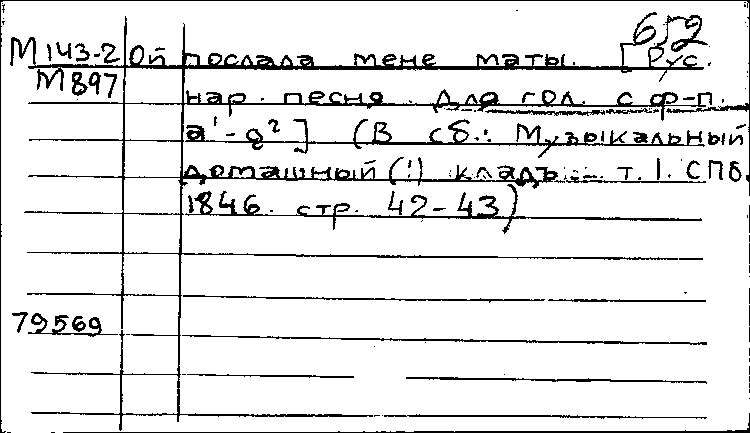 652
М143-2 Ой послала мене маты. [Рус.
М897
нар. песня. Для гол. с ф-п.
a¹-g²] (В сб.: Музыкальный
домашный (!) кладъ.- т. 1. СПб.
1846. стр. 42-43)
79569